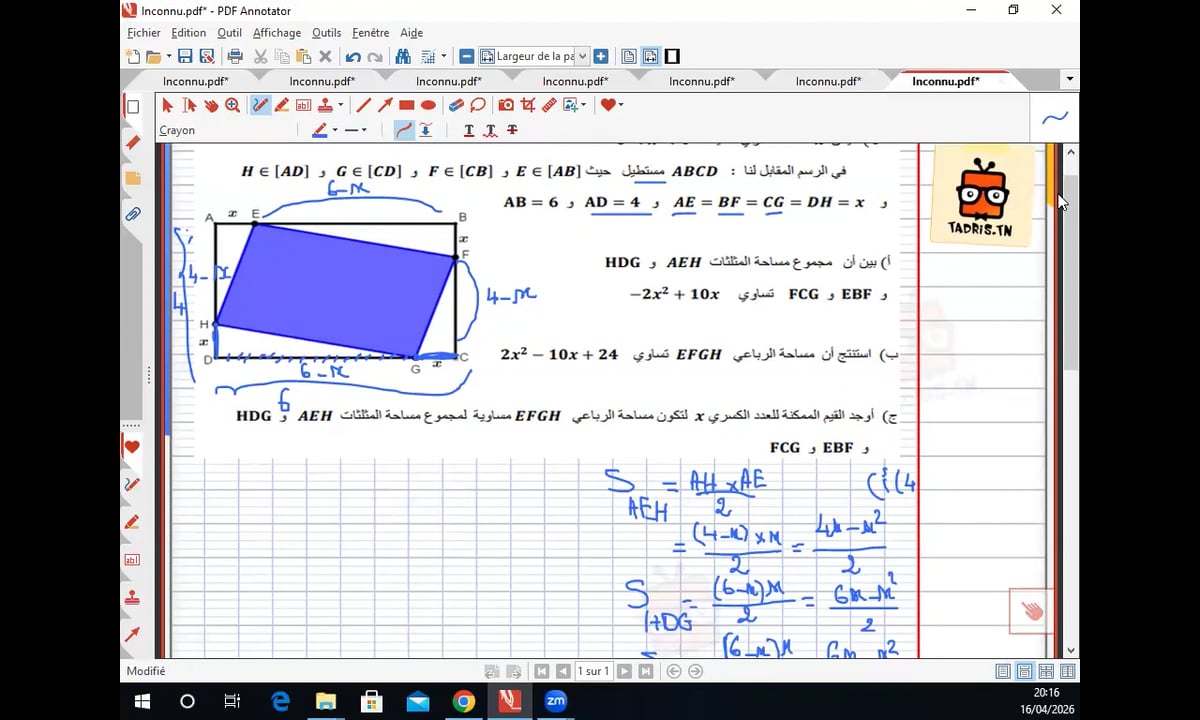 Inconnu.pdf* - PDF Annotator
Fichier Edition Outil Affichage Outils Fenêtre Aide
Largeur de la pa
Inconnu.pdf* Inconnu.pdf* Inconnu.pdf* Inconnu.pdf* Inconnu.pdf* Inconnu.pdf* Inconnu.pdf*
Crayon
في الرسم المقابل لنا : ABCD مستطيل حيث E ∈ [AB] و F ∈ [CB] و G ∈ [CD] و H ∈ [AD]
و AE = BF = CG = DH = x و AD = 4 و AB = 6
TADRIS.TN
6-x
A x E B
x
F
4-x
4
4-x
H
x
D G x C
6-x
6
أ) بين أن مجموع مساحة المثلثات AEH و HDG
و EBF و FCG تساوي −2x² + 10x
ب) استنتج أن مساحة الرباعي EFGH تساوي 2x² − 10x + 24
ج) أوجد القيم الممكنة للعدد الكسري x لتكون مساحة الرباعي EFGH مساوية لمجموع مساحة المثلثات AEH و HDG
و EBF و FCG
S AEH = AH x AE / 2
= (4-x) x x / 2 = 4x-x² / 2
S HDG = (6-x)x / 2 = 6x-x² / 2
(6-x)x
Modifié
1 sur 1
zm
20:16
16/04/2026